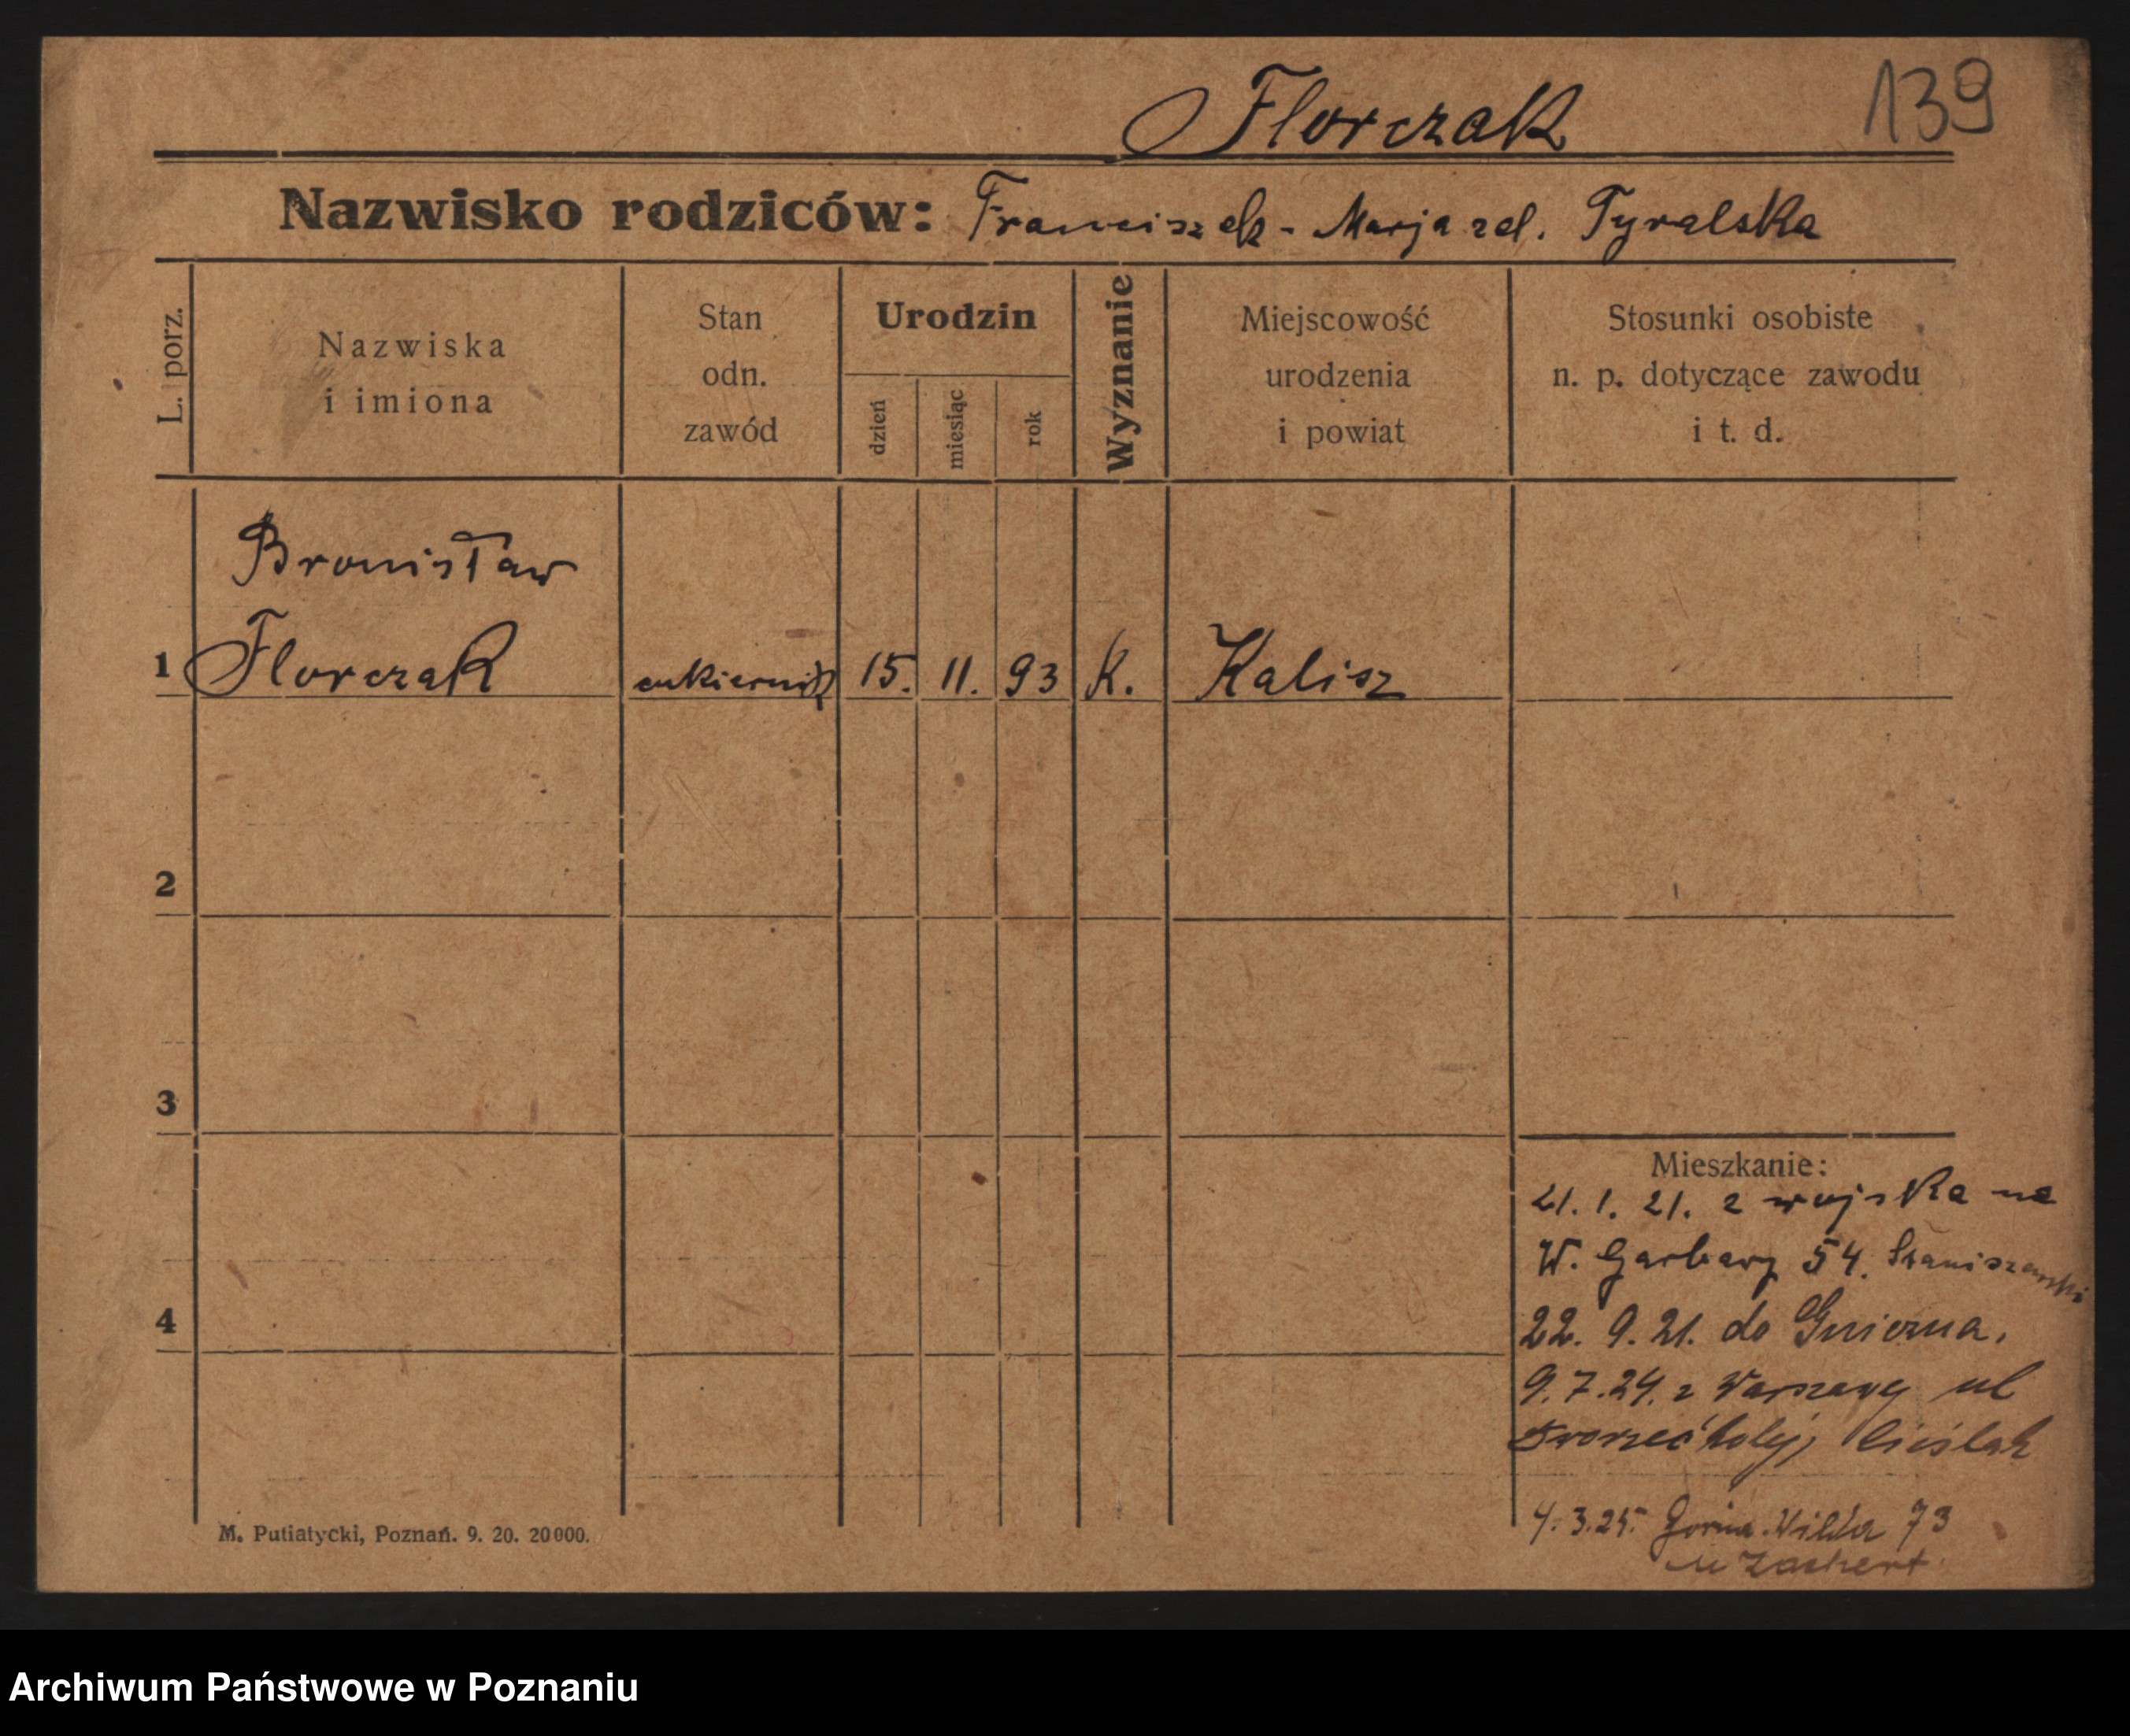 Florczak 139
Nazwisko rodziców: Franciszek - Marja zd. Tyralska
L. porz.
Nazwiska
i imiona
Stan
odn.
zawód
Urodzin
dzień
miesiąc
rok
Wyznanie
Miejscowość
urodzenia
i powiat
Stosunki osobiste
n. p. dotyczące zawodu
i t. d.
Bronisław
1 Florczak cukiernik 15. 11. 93 K. Kalisz
2
3
4
Mieszkanie:
21. 1. 21. z wojska na
W. Garbary 54. Staniszewski
22. 9. 21. do Gniezna.
9. 7. 24. z Warszawy ul
Dworzec kolej, Cieślak
4. 3. 25. Górna Wilda 73
u Zachert
M. Putiatycki, Poznań. 9. 20. 20000.
Archiwum Państwowe w Poznaniu